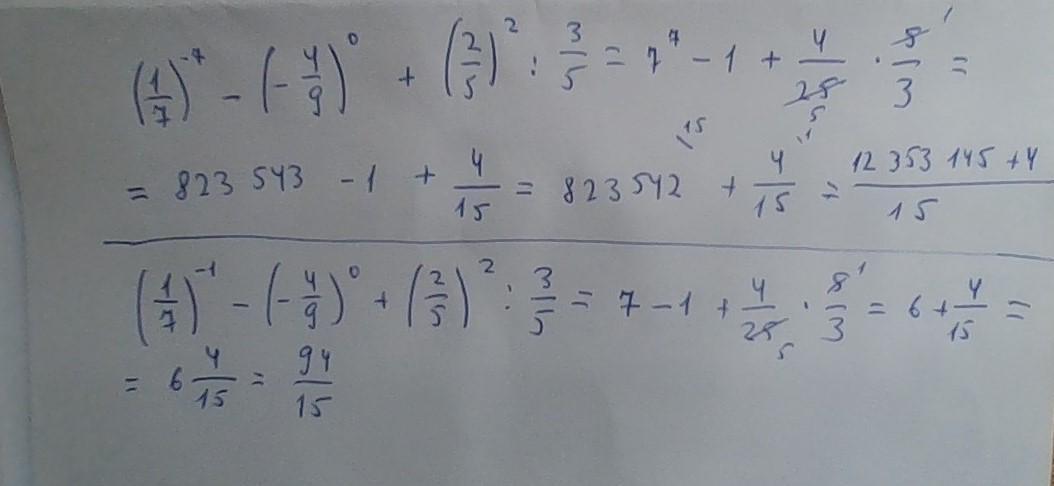 (1/7)^-7 - (-4/9)^0 + (2/5)^2 : 3/5 = 7^7 - 1 + 4/25 5 · 5/3 1 =
= 823 543 - 1 + 4/15 = 823 542 \15 + 4/15 \1 = (12 353 145 + 4)/15
(1/7)^-1 - (-4/9)^0 + (2/5)^2 : 3/5 = 7 - 1 + 4/25 5 · 5/3 1 = 6 + 4/15 =
= 6 4/15 = 94/15